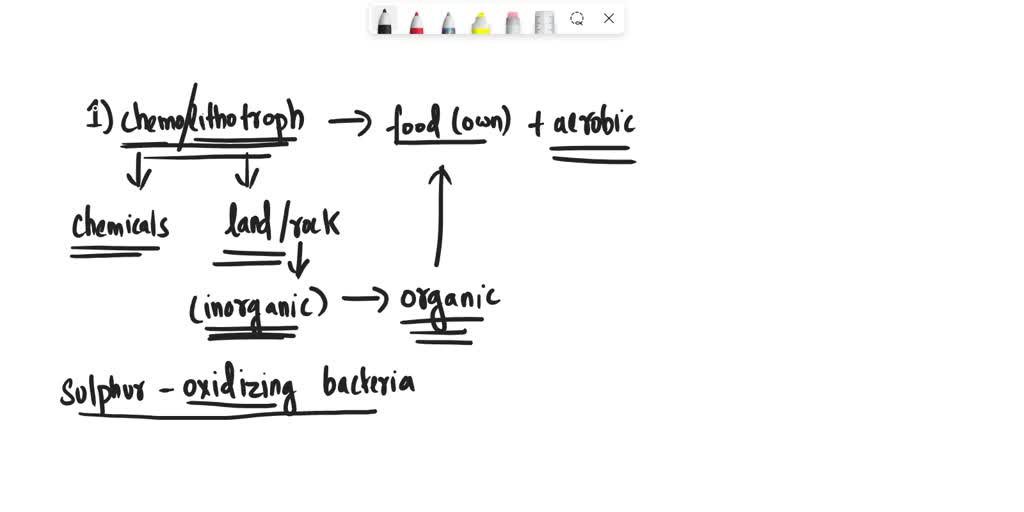 1) chemo/lithotroph → food (own) + aerobic
chemicals land/rock
(inorganic) → organic
sulphur - oxidizing bacteria